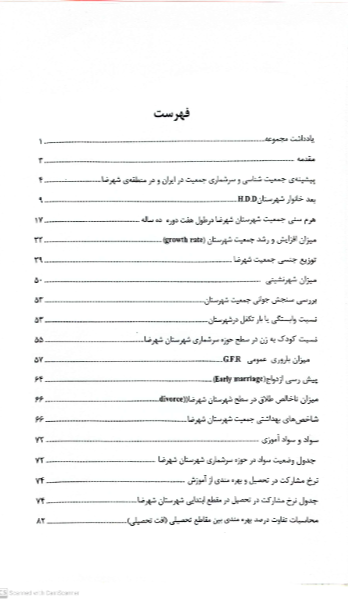 فهرست
یادداشت مجموعه ۱
مقدمه ۳
پیشینه‌ی جمعیت شناسی و سرشماری جمعیت در ایران و در منطقه‌ی شهرضا ۴
بعد خانوار شهرستان H.D.D ۹
هرم سنی جمعیت شهرستان شهرضا درطول هفت دوره ده ساله ۱۷
میزان افزایش و رشد جمعیت شهرستان (growth rate) ۳۳
توزیع جنسی جمعیت شهرضا ۳۹
میزان شهرنشینی ۵۰
بررسی سنجش جوانی جمعیت شهرستان ۵۳
نسبت وابستگی یا بار تکفل درشهرستان ۵۳
نسبت کودک به زن در سطح حوزه سرشماری شهرستان شهرضا ۵۵
میزان باروری عمومی G.F.R ۵۷
پیش رسی ازدواج(Early marriage) ۶۴
میزان ناخالص طلاق در سطح شهرستان شهرضا((divorce ۶۶
شاخص‌های بهداشتی جمعیت شهرستان شهرضا ۶۶
سواد و سواد آموزی ۷۲
جدول وضعیت سواد در حوزه سرشماری شهرستان شهرضا ۷۲
نرخ مشارکت در تحصیل و بهره مندی از آموزش ۷۴
جدول نرخ مشارکت در تحصیل در مقطع ابتدایی شهرستان شهرضا ۷۴
محاسبات تفاوت درصد بهره مندی بین مقاطع تحصیلی (افت تحصیلی) ۸۲
Scanned with CamScanner